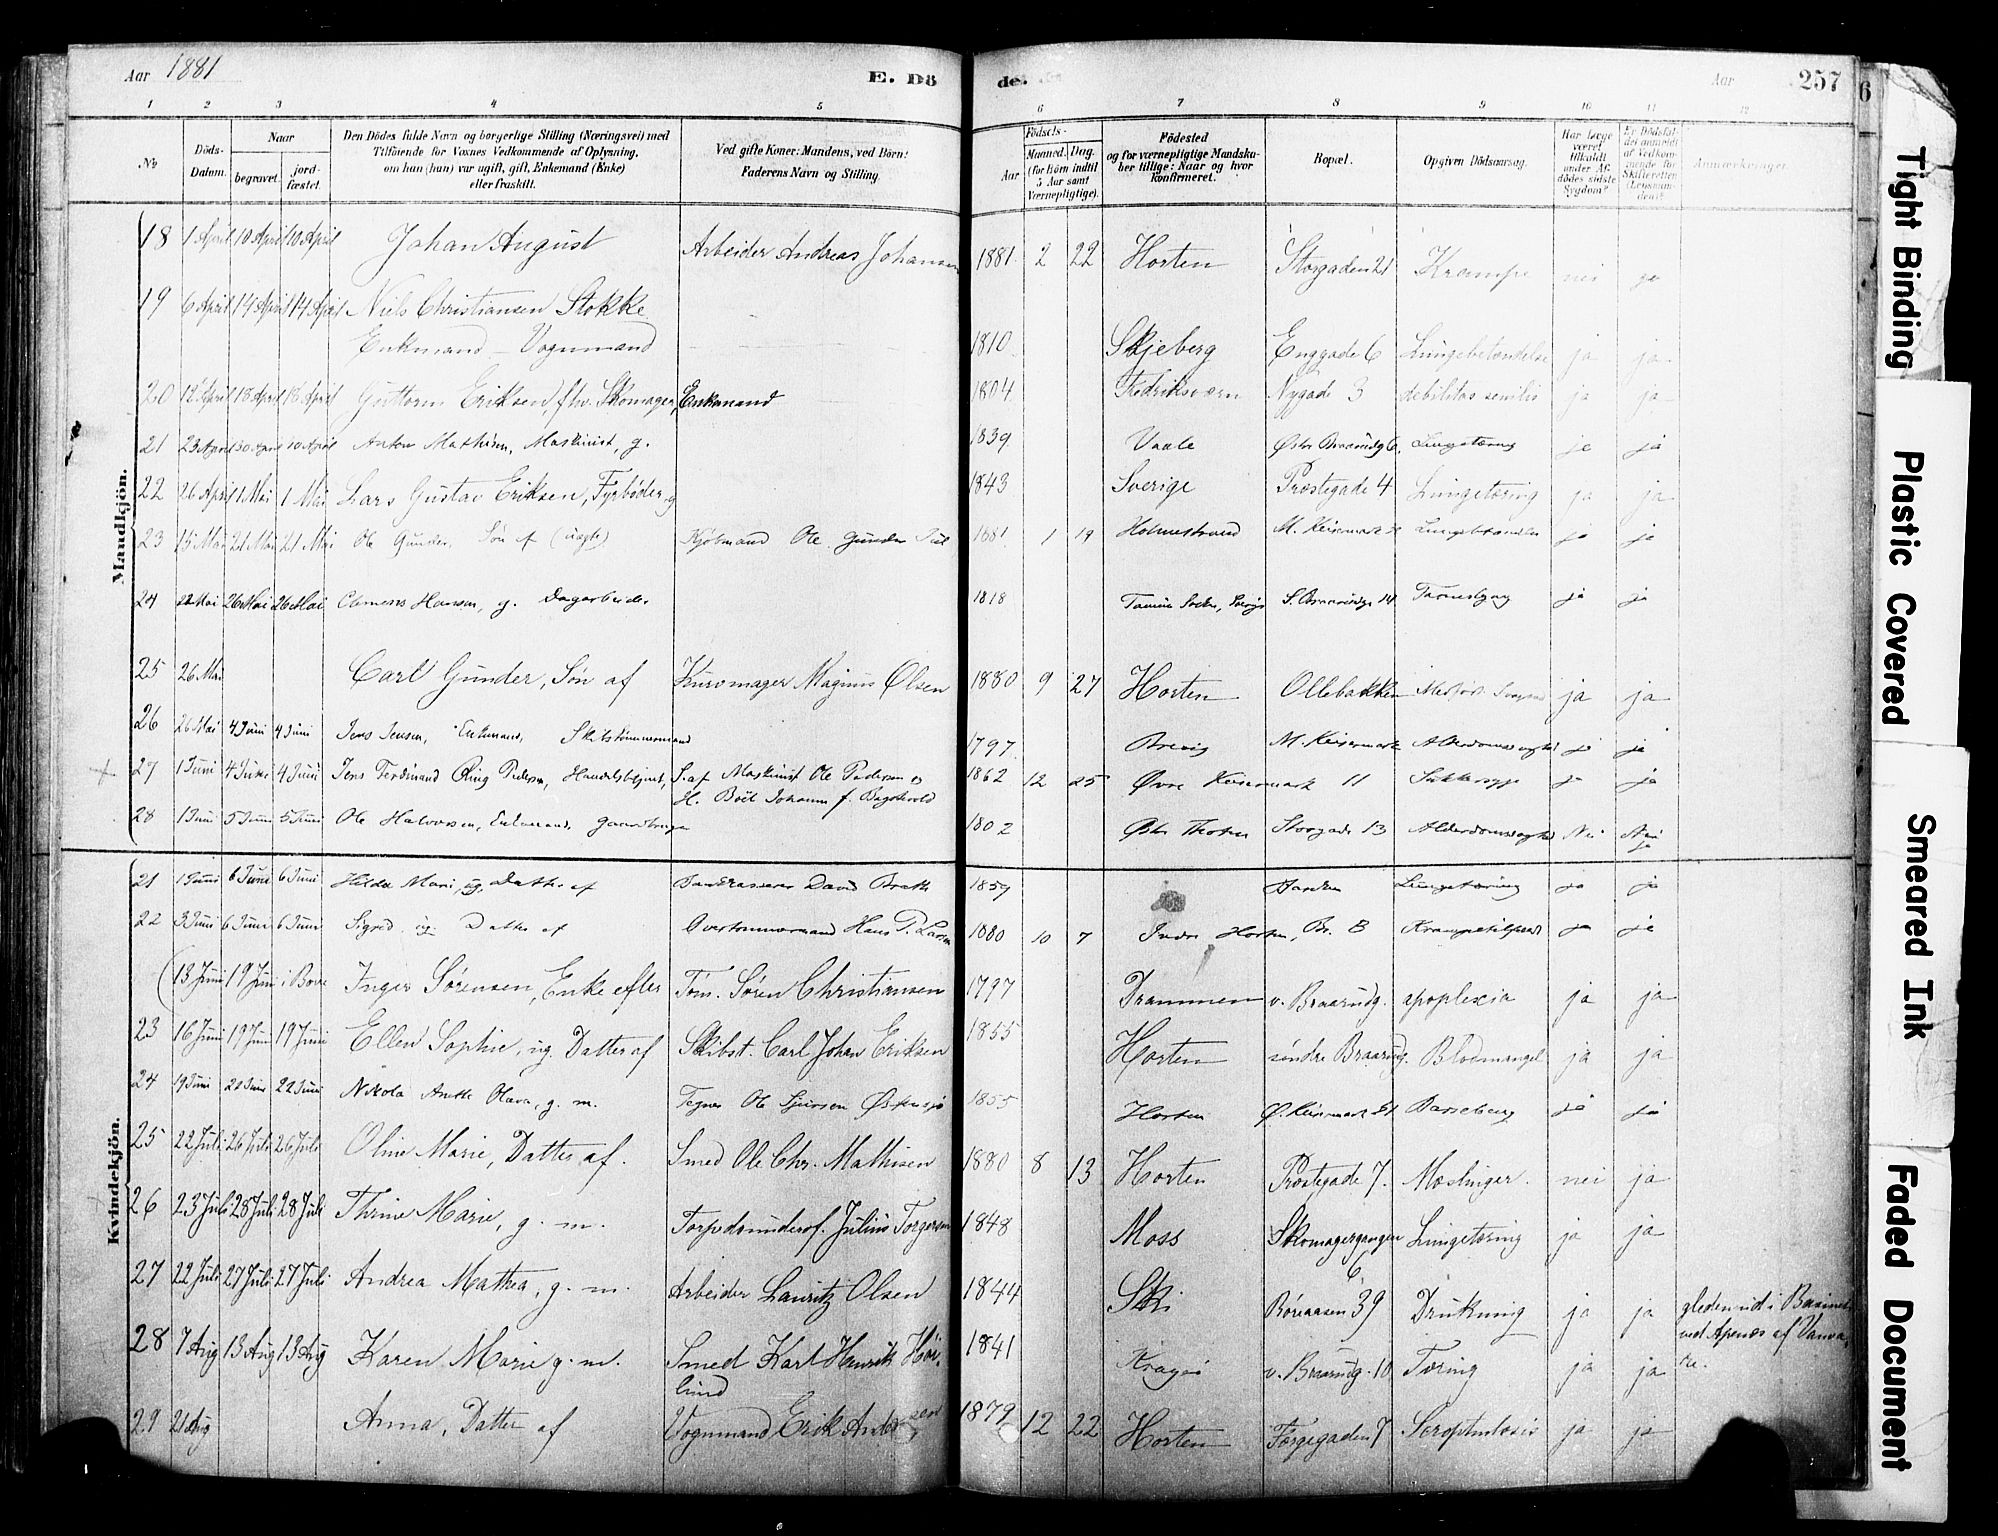 Aar 1881 E. Dö de. Aar 257
1 2 3 4 5 6 7 8 9 10 11 12
No
Döds-Datum.
Naar
begravet.
jordfæstet.
Den Dödes fulde Navn og borgerlige Stilling (Næringsvei) med
Tilföiende for Voxnes Vedkommende af Oplysning,
om han (hun) var ugift, gift, Enkemand (Enke)
eller fraskilt.
Ved gifte Koner: Mandens, ved Børn:
Faderens Navn og Stilling.
Födsels-
Aar
Maaned. Dag.
(for Börn indtil
5 Aar samt
Værnepligtige).
Födested
og for værnepligtige Mandska-
ber tillige: Naar og hvor
konfirmeret.
Bopæl.
Opgiven Dödsaarsag.
Har læge
været
tilkaldt
under Af-
dödes sidste
Sygdom?
Er Dödsfal-
det anmeldt
af Vedkom-
mende for
Skifteretten
(Lensman-
den)?
Anmærkninger.
Mandkjön.
18 1 April 10 April 10 April Johan August Arbeider Andreas Johansen 1881 2 22 Horten Storgaden 21 Krampe nei ja
19 6 April 14 April 14 April Niels Christiansen Stokke
Enkmand - Vognmand 1810 Skjeberg Enggade 6 Lungebetændelse ja ja
20 12 April 18 April 18 April Guttorm Eriksen, fhv. Skomager, Enkemand 1804 Fredriksværn Nygade 3 debilitas senilis ja ja
21 23 April 30 April 10 April Anton Mathisen, Maskinist, g. 1839 Vaale Østr Braarudg 6, Lungetæring ja ja
22 26 April 1 Mai 1 Mai Lars Gustav Eriksen, Fyrbøder, g 1843 Sverige Præstegade 4 Lungetæring ja ja
23 15 Mai 21 Mai 21 Mai Ole Gunder, Søn af (uægte) Kjøbmand Ole Gunder 1881 1 19 Holmestrand M. Keisermark Lungebetændelse ja ja
24 22 Mai 26 Mai 26 Mai Clemens Hansen, g. Dagarbeider 1818 S. Braarudg 14 ja ja
25 26 Mai Carl Gunder, Søn af Kurvmager Magnus Olsen 1880 9 27 Horten Ollebakken Medfødt ja ja
26 26 Mai 4 Juni 4 Juni Jens Jensen, Enkemand, Skibstømmermand 1797 Brevig M. Keisermark Alderdomssvaghed ja ja
27 1 Juni 4 Juni 4 Juni Jens Ferdinand Pedersen, Handelsbetjent, S. af Maskinist Ole Pedersen og
H. Boel Johanne f. 1862 12 25 Øvre Keisermark 11 Sukkersyge ja ja
28 1 Juni 5 Juni 5 Juni Ole Halvorsen, Enkemand, Gaardbruger 1802 Østr Thoten Storgade 13 Alderdomssvaghed Nei Nei
ja
Kvindekjön.
21 1 Juni 6 Juni 6 Juni Hilda Marie, ug. Datter af David 1859 Lungetæring ja ja
22 3 Juni 6 Juni 6 Juni Sigrid ug. Datter af Overtømmermand Hans P. Larsen 1880 10 7 Indre Horten, Br. B Krampetilfælde ja ja
(13 Juni 19 Juni i Borre Inger Sørensen, Enke efter Tøm. Søren Christiansen 1797 Drammen v. Braarudg. apoplexia ja ja
23 16 Juni 19 Juni 19 Juni Ellen Sophie, ug. Datter af Skibst. Carl Johan Eriksen 1855 Horten søndre Braarudg. Blodmangel ja ja
24 19 Juni 22 Juni 22 Juni Nikola Anette Olava, g. m. Tegner Ole 1855 Horten Ø. Keisermark 21 Barselseng ja ja
25 22 Juli 26 Juli 26 Juli Oline Marie, Datter af. Smed Ole Chr. Mathisen 1880 8 13 Horten Præstegade 7. Mæslinger. nei ja
26 23 Juli 28 Juli 28 Juli Thrine Marie, g. m. Torpedounderof. Julius Torgersen 1848 Moss Skomagergangen
6 Lungetæring ja ja
27 22 Juli 27 Juli 27 Juli Andrea Mathea, g. m. Arbeider Lauritz Olsen 1844 Ski Røreaasen 39 Drukning ja ja gleden ud i Basinet
ved Apenæs af Vanva
re.
28 7 Aug 13 Aug 13 Aug Karen Marie g. m. Smed Karl Henrik Hör-
lund 1841 Kragerø v. Braarudg. 10 Tæring ja ja
29 21 Aug Anna, Datter af Vognmand Erik Andersen 1879 12 22 Horten Færgegaden 7 Scrophulosis ja ja
6
Tight Binding
Plastic Covered
Smeared Ink
Faded Document